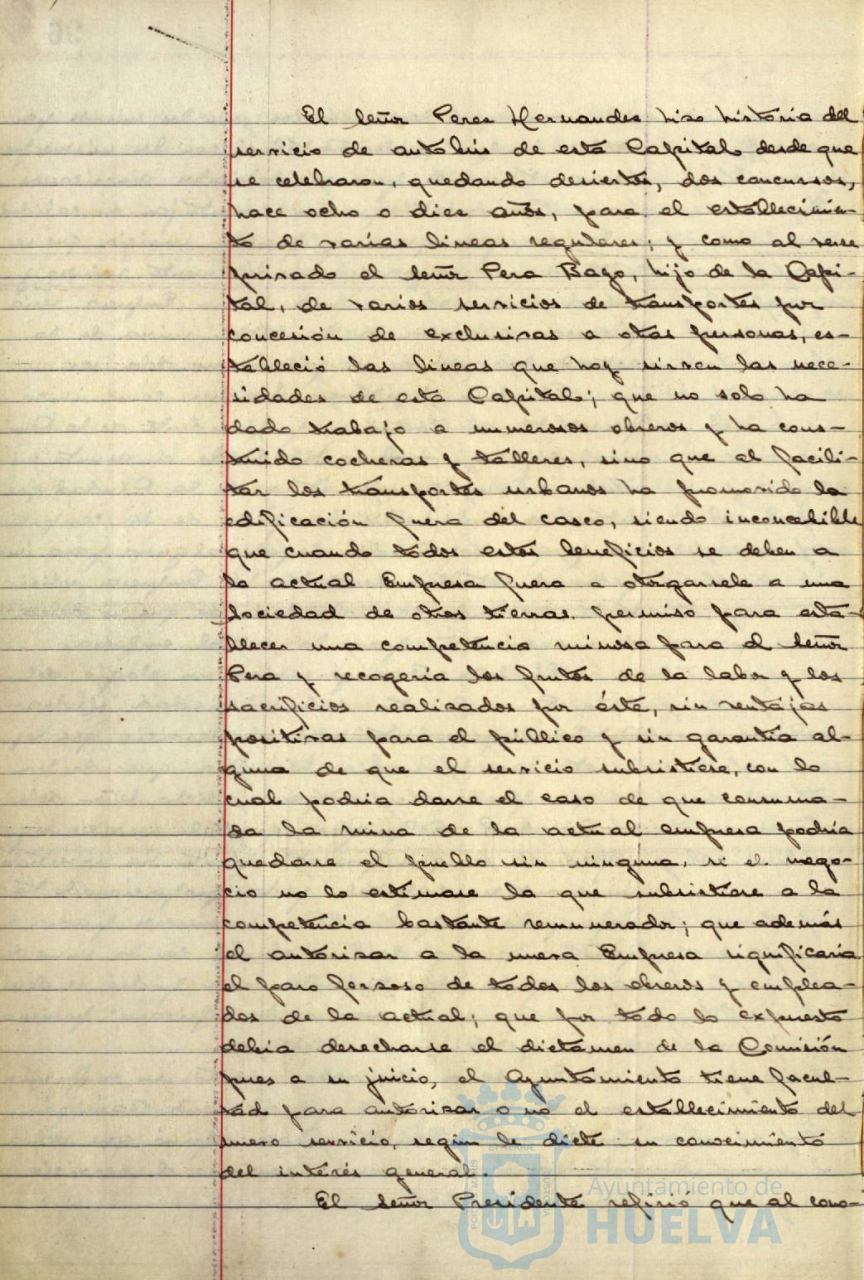 El señor Perez Hernandez hizo historia del
servicio de autobús de esta Capital desde que
se celebraron, quedando desiertos, dos concursos,
hace ocho o diez años, para el establecimien-
to de varias lineas regulares; y como al verse
privado el señor Pera Bago, hijo de la Capi-
tal, de varios servicios de transportes por
concesión de exclusivas a otras personas, es-
tableció las lineas que hoy sirven las nece-
sidades de esta Capital; que no solo ha
dado trabajo a numerosos obreros y ha cons-
truido cocheras y talleres, sino que al facili-
tar los transportes urbanos ha promovido la
edificación fuera del casco, siendo inconcebible
que cuando todos estos beneficios se deben a
la actual Empresa fuera a otorgarsele a una
Sociedad de otras tierras permiso para esta-
blecer una competencia ruinosa para el señor
Pera y recogería los frutos de la labor y los
sacrificios realizados por éste, sin ventajas
positivas para el público y sin garantía al-
guna de que el servicio subsistiese, con lo
cual podria darse el caso de que consuma-
da la ruina de la actual empresa podria
quedarse el pueblo sin ninguna, si el nego-
cio no lo estimase la que subsistiese a la
competencia bastante remunerador; que además
el autorizar a la nueva Empresa significaria
el paro forzoso de todos los obreros y emplea-
dos de la actual; que por todo lo expuesto
debia desecharse el dictámen de la Comisión
pues a su juicio, el Ayuntamiento tiene facul-
tad para autorizar o no el establecimiento del
nuevo servicio, según le dicte su conocimiento
del interés general.
El señor Presidente refirió que al cono-
Ayuntamiento de
HUELVA